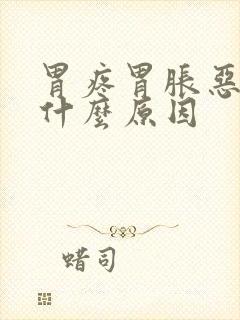 胃疼胃脹惡
什麼原因
蜡司